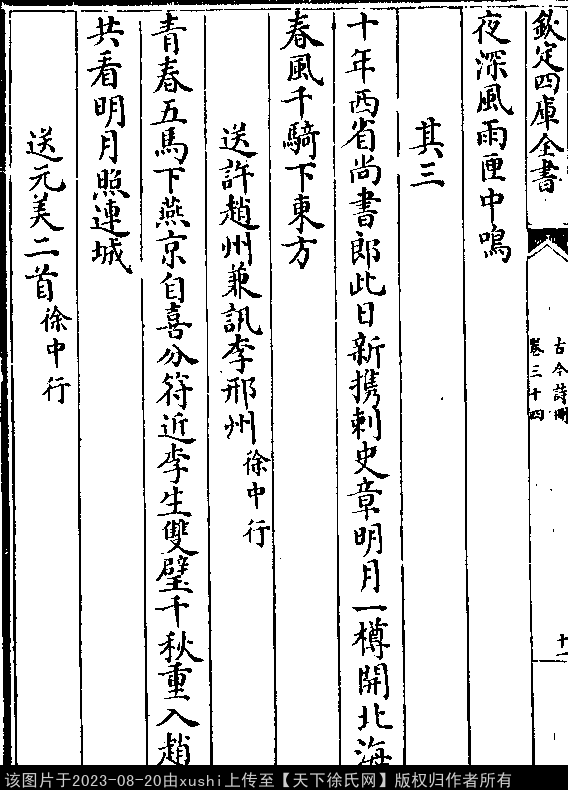 欽定四庫全書
古今詩刪
卷三十四
十一
夜深風雨匣中鳴
其三
十年西省尚書郎此日新攜刺史章明月一樽開北海
春風千騎下東方
送許趙州兼訊李邢州徐中行
青春五馬下燕京自喜分符近李生雙璧千秋重入趙
共看明月照連城
送元美二首徐中行
该图片于2023-08-20由xushi上传至【天下徐氏网】版权归作者所有